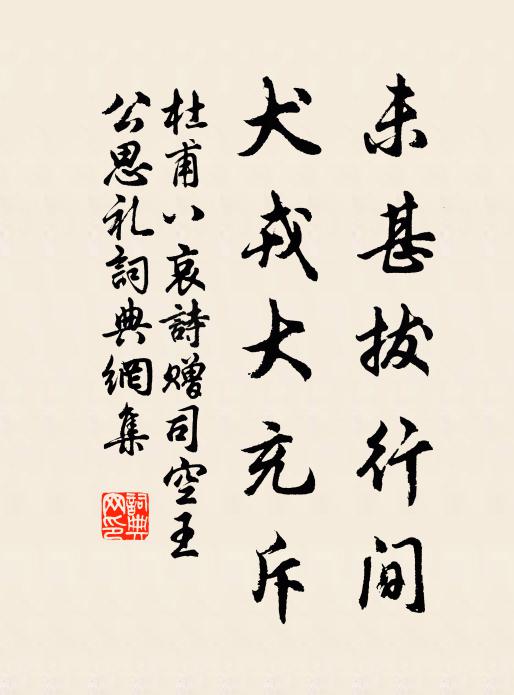 未甚拔行间
犬戎大充斥
杜甫八哀詩赠司空王
公思礼詞典網集
詞典
网印